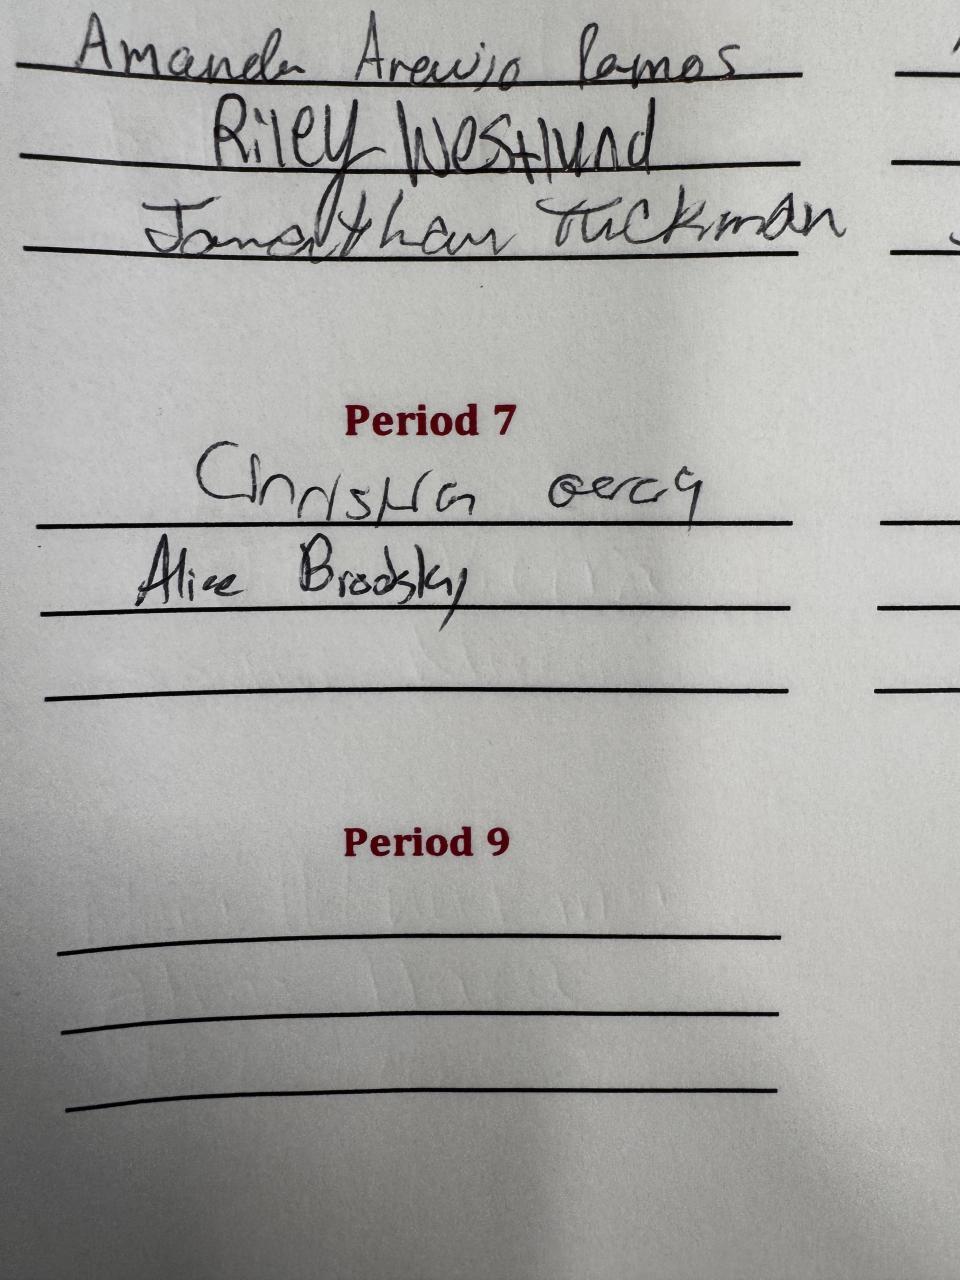 Amanda Araujo Ramos
Riley Westlund
Jonathan Tuckman
Period 7
Christia
Alice Brodsky
Period 9